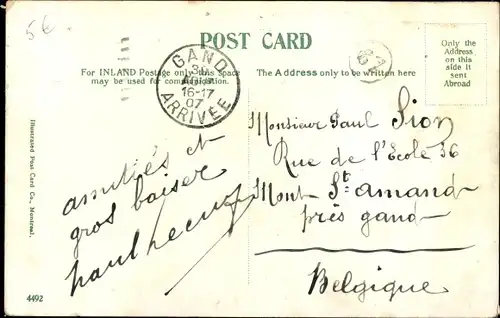 5 €
POST CARD
For INLAND Postage only this space
may be used for communication.
The Address only to be written here
Only the
Address on
this side if
sent
Abroad
GAND
3
16-17
07
ARRIVÉE
amitiés et
gros baiser
Monsieur Paul Sion
Rue de l'École 36
Mont St. amand
près gand
Belgique
Illustrated Post Card Co., Montreal.
4492